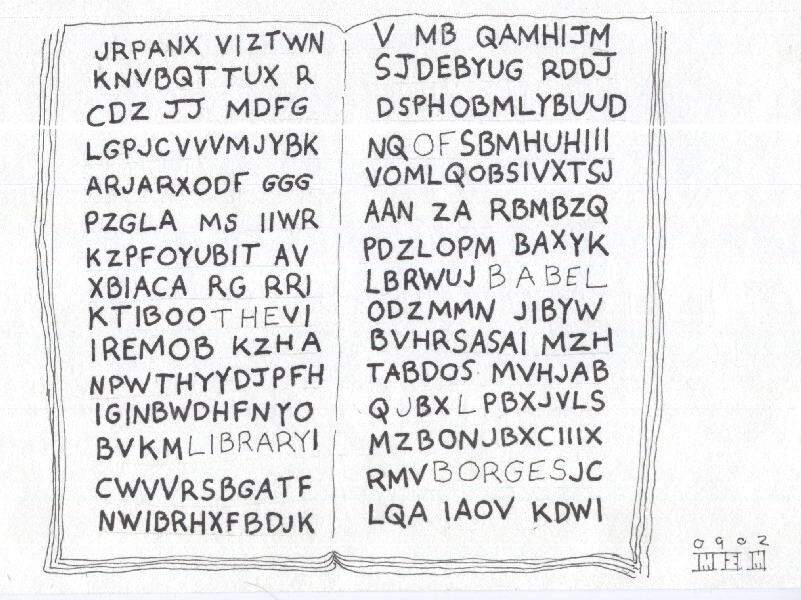 JRPANX VIZTWN
KNVBQTTUX R
CDZ JJ MDFG
LGPJCVVVMJYBK
ARJARXODF GGG
PZGLA MS IIWR
KZPFOYUBIT AV
XBIACA RG RRI
KTIBOOTHEVI
IREMOB KZHA
NPWTHYYDJPFH
IGINBWDHFNYO
BVKMLIBRARYI
CWVVRSBGATF
NWIBRHXFBDJK
V MB QAMHIJM
SJDEBYUG RDDJ
DSPHOBMLYBUUD
NQOFSBMHUHIII
VOMLQOBSIVXTSJ
AAN ZA RBMBZQ
PDZLOPM BAXYK
LBRWUJ BABEL
ODZMMN JIBYW
BVHRSASAI MZH
TABDOS MVHJAB
QJBXLPBXJVLS
MZBONJBXCIIIX
RMVBORGESJC
LQA IAOV KDWI
0902